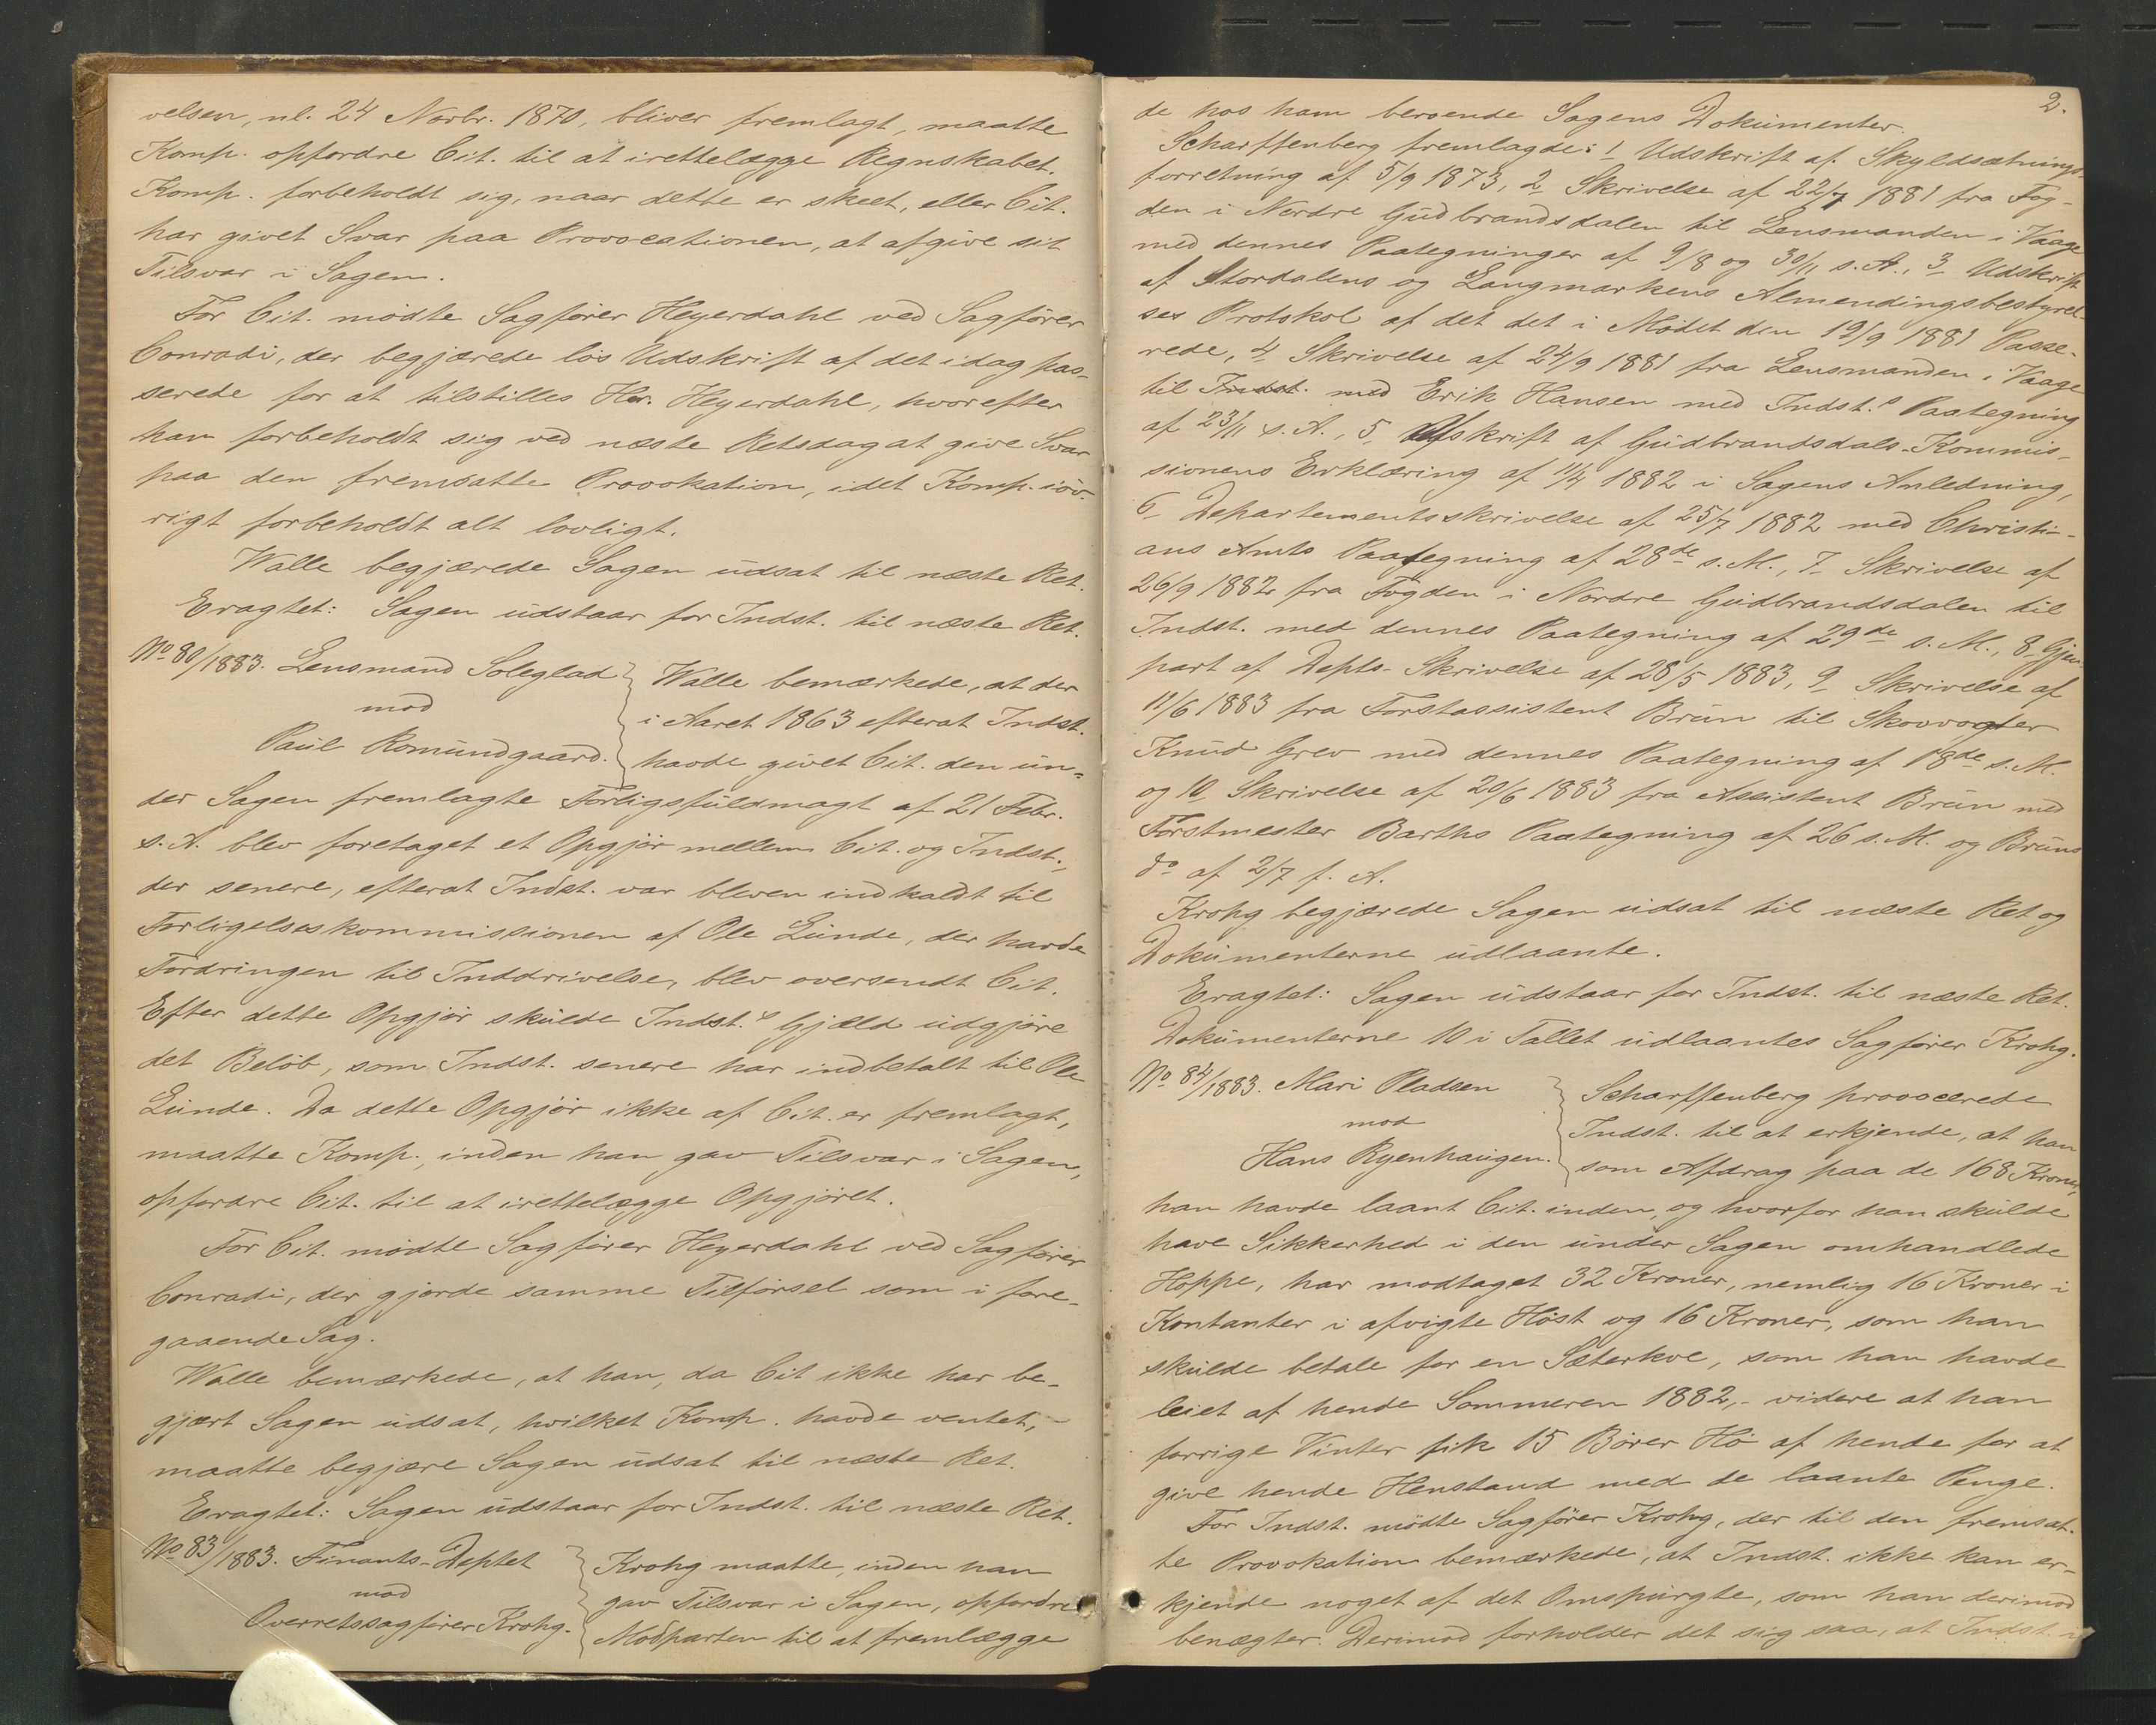 velsen, nl. 24 Novbr. 1870, bliver fremlagt, maatte
Komp. opfordre Cit. til at irettelægge Regnskabet.
Komp. forbeholdt sig, naar dette er skeet, eller Cit.
har givet Svar paa Provocationen, at afgive sit
Tilsvar i Sagen.
For Cit. mödte Sagförer Heyerdahl ved Sagförer
Conradi, der begjærede lös Udskrift af det idag pas-
serede for at tilstilles Hr. Heyerdahl, hvorefter
han forbeholdt sig ved næste Retsdag at give Svar
paa den fremsatte Provokation, idet Komp. iöv-
rigt forbeholdt alt lovligt.
Walle begjærede Sagen udsat til næste Ret.
Eragtet: Sagen udstaar for Indst. til næste Ret.
No 80/1883. Lensmand Soleglad
mod
Paul Romundgaard.
Walle bemærkede, at der
i Aaret 1863 efterat Indst.
havde givet Cit. den un-
der Sagen fremlagte Forligsfuldmagt af 21 Febr.
s. A. blev foretaget et Opgjör mellem Cit. og Indst.,
der senere, efterat Indst. var bleven indkaldt til
Forligelseskommissionen af Ole Lunde, der havde
Fordringen til Inddrivelse, blev oversendt Cit.
Efter dette Opgjör skulde Indst.s Gjæld udgjöre
det Belöb, som Indst. senere har indbetalt til Ole
Lunde. Da dette Opgjör ikke af Cit. er fremlagt,
maatte Komp., inden han gav Tilsvar i Sagen,
opfordre Cit. til at irettelægge Opgjöret.
For Cit. mödte Sagförer Heyerdahl ved Sagförer
Conradi, der gjorde samme Tilförsel som i fore-
gaaende Sag.
Walle bemærkede, at han, da Cit ikke har be-
gjært Sagen udsat, hvilket Komp. havde ventet,
maatte begjære Sagen udsat til næste Ret.
Eragtet: Sagen udstaar for Indst. til næste Ret.
No 83/1883. Finants-Deptet
mod
Overretssagförer Krohg.
Krohg maatte, inden han
gav Tilsvar i Sagen, opfordre
Modparten til at fremlægge
2.
de hos ham beroende Sagens Dokumenter.
Scharffenberg fremlagde: 1 Udskrift af Skyldsætnings-
forretning af 5/9 1873, 2 Skrivelse af 22/7 1881 fra Fog-
den i Nordre Gudbrandsdalen til Lensmanden i Vaage
med dennes Paategninger af 9/8 og 30/11 s. A., 3 Udskrift
af Stordalens og Langmarkens Almendingsbestyrel-
ses Protokol af det det i Mödet den 19/9 1881 Passe-
rede, 4 Skrivelse af 24/9 1881 fra Lensmanden i Vaage
til Indst. med Erik Hansen med Indst.s Paategning
af 23/11 s. A., 5, Afskrift af Gudbrandsdals-Kommis-
sionens Erklæring af 11/4 1882 i Sagens Anledning,
6 Departementsskrivelse af 25/7 1882 med Christi-
ans Amts Paategning af 28de s. M., 7 Skrivelse af
26/9 1882 fra Fogden i Nordre Gudbrandsdalen til
Indst. med dennes Paategning af 29de s. M., 8 Gjen-
part af Depts-Skrivelse af 28/5 1883, 9 Skrivelse af
11/6 1883 fra Forstassistent Brun til Skovvogter
Knud Grev med dennes Paategning af 18de s. M.
og 10 Skrivelse af 20/6 1883 fra Assistent Brun med
Forstmester Barths Paategning af 26 s. M. og Bruns
do af 2/7 f. A.
Krohg begjærede Sagen udsat til næste Ret og
Dokumenterne udlaante.
Eragtet: Sagen udstaar for Indst. til næste Ret.
Dokumenterne 10 i Tallet udlaantes Sagförer Krohg.
No 84/1883. Mari Pladsen
mod
Hans Ryenhaugen.
Scharffenberg provocerede
Indst. til at erkjende, at han
som Afdrag paa de 168 Kroner,
han havde laant Cit. inden, og hvorfor han skulde
have Sikkerhed i den under Sagen omhandlede
Hoppe, har modtaget 32 Kroner, nemlig 16 Kroner i
Kontanter i afvigte Höst og 16 Kroner, som han
skulde betale for en Sæterkve, som han havde
leiet af hende Sommeren 1882,- videre at han
forrige Vinter fik 15 Börer Hö af hende for at
give hende Henstand med de laante Penge.
For Indst. mödte Sagförer Krohg, der til den fremsat-
te Provokation bemærkede, at Indst. ikke kan er-
kjende noget af det Omspurgte, som han derimod
benægter. Derimod forholder det sig saa, at Indst.